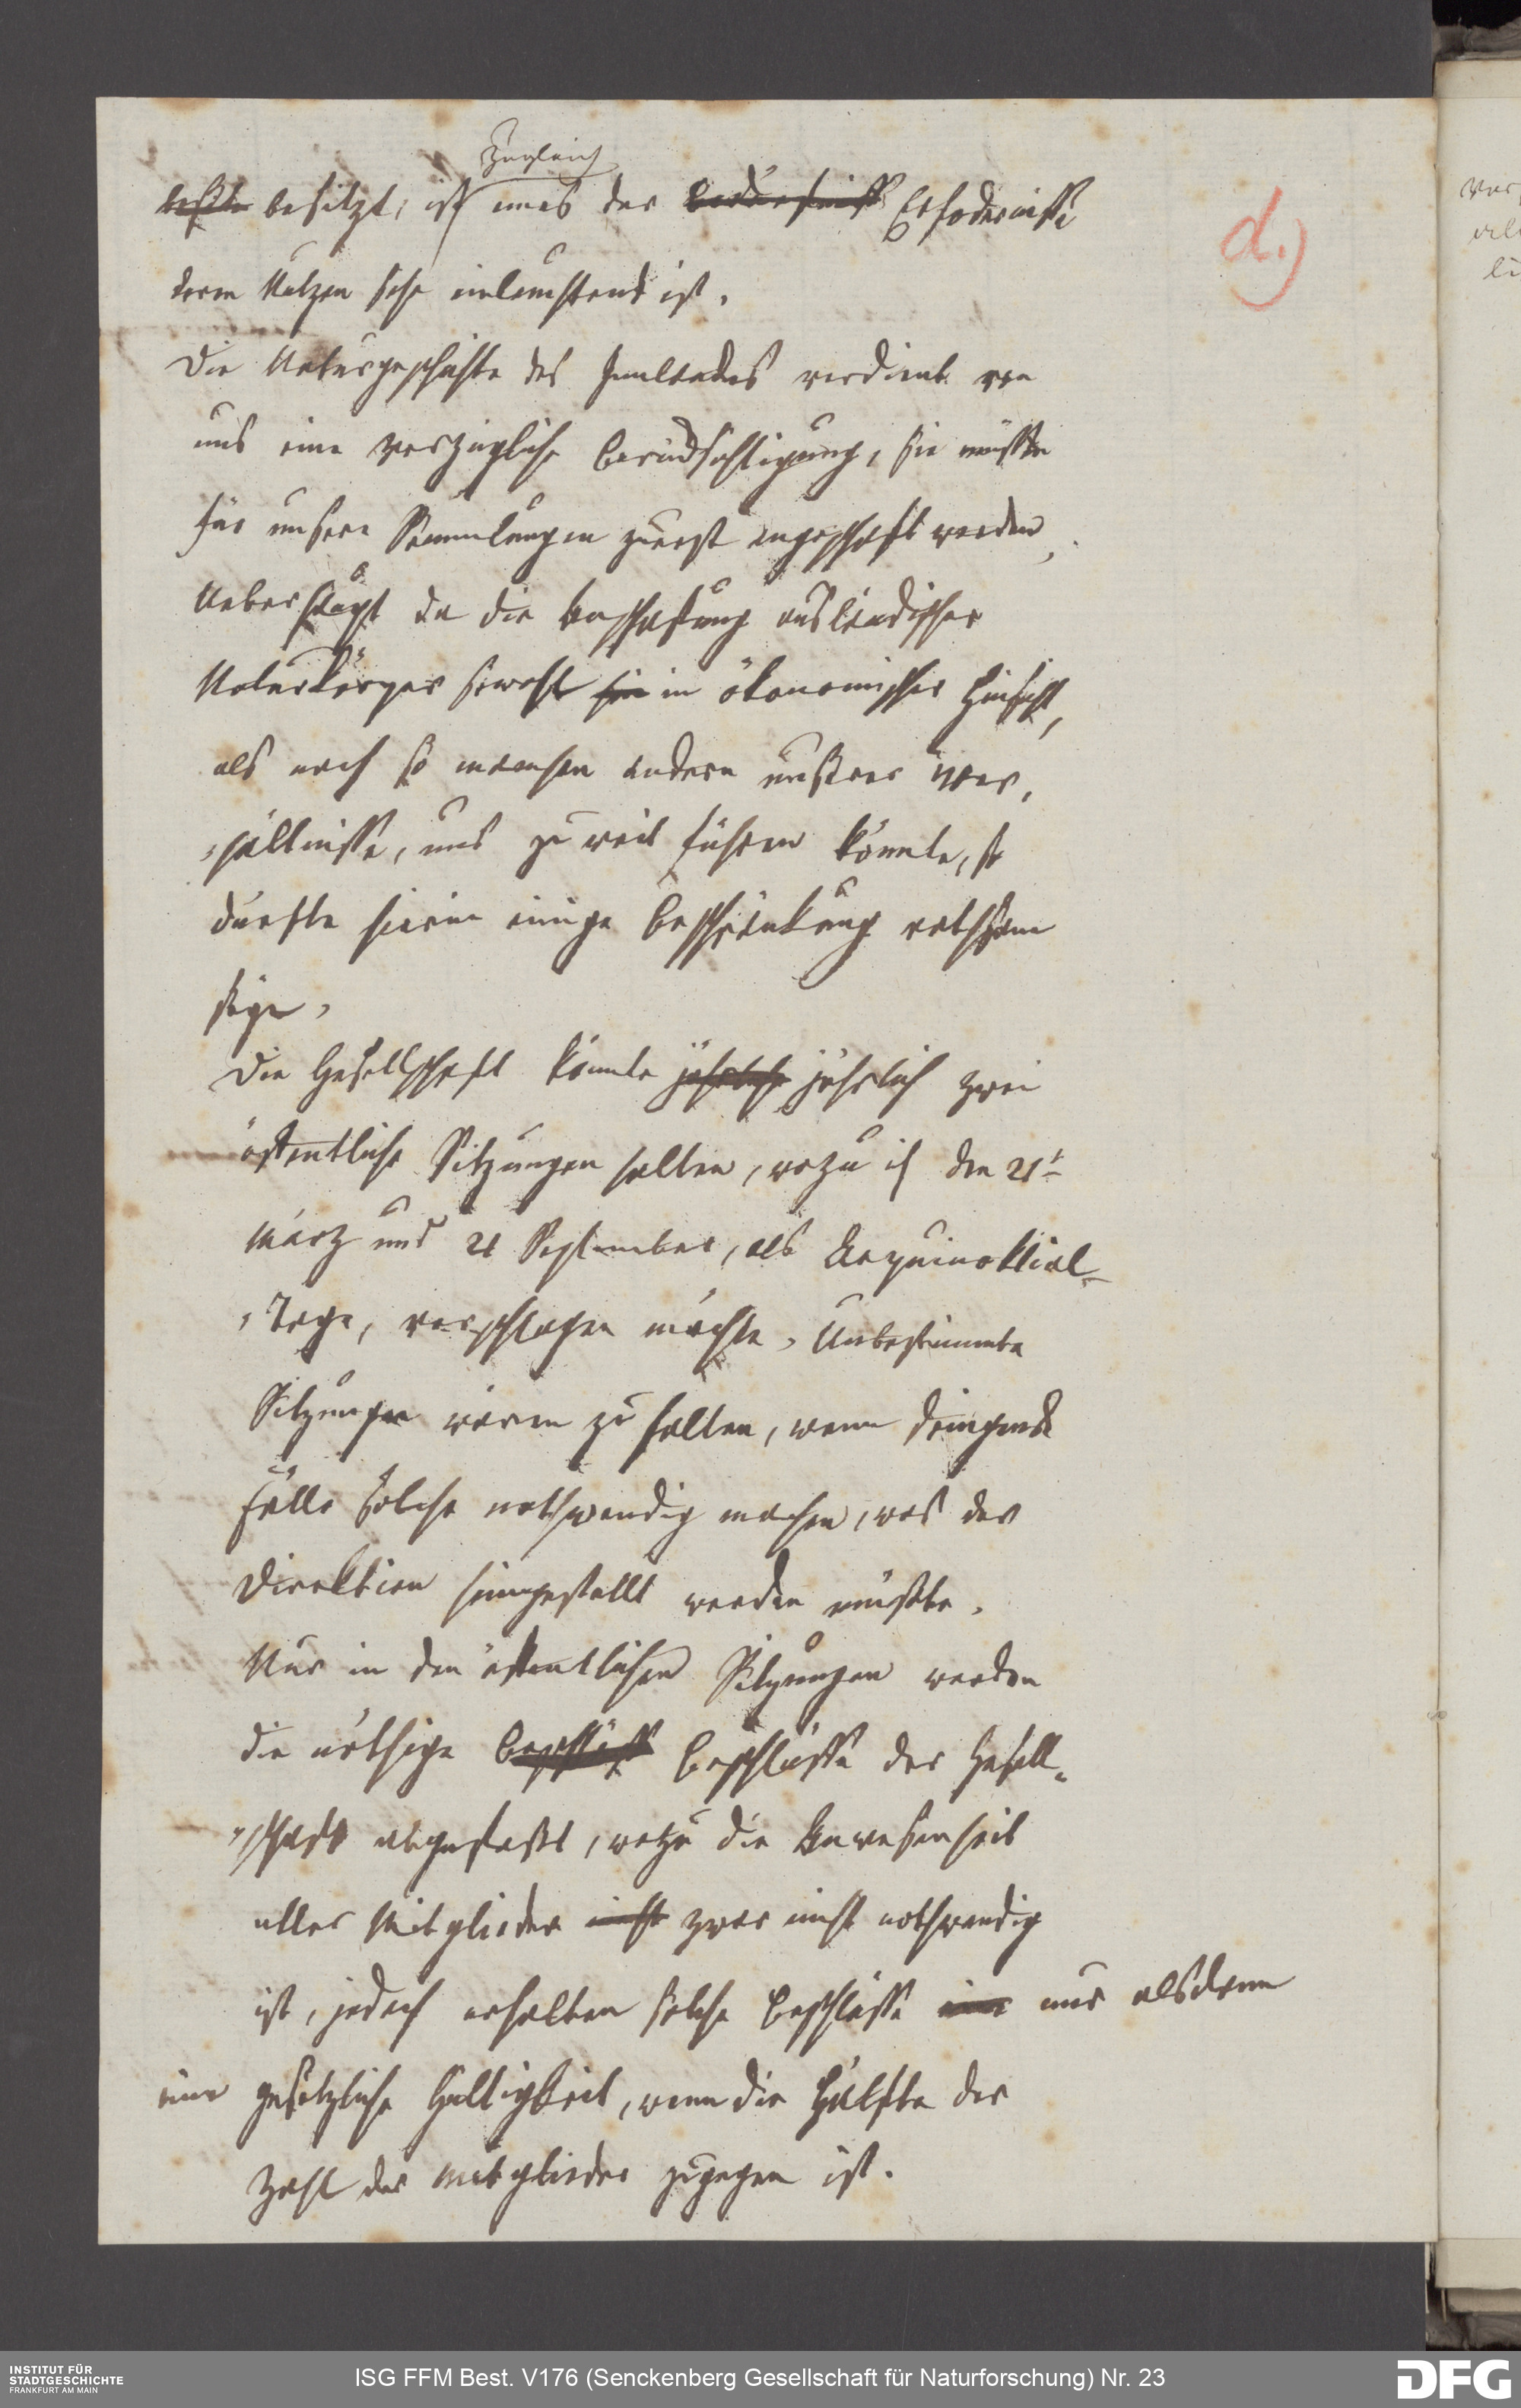 zugleich
besitzt, ist eines der Bedürfnisse Erfodernisse
d.)
deren Nutzen sehr einleuchtend ist.
Die Naturgeschichte des Innlandes verdient von
uns eine vorzügliche Berücksichtigung, sie müsste
für unsere Sammlungen zuerst angeschaft werden,
Ueberhaupt da die Anschafung ausländischer
Naturkörper sowohl in ökonomischer Hinsicht,
als nach so manchen andern unserer Ver,
hältnisse, uns zu weit führen könnte, so
dürfte hierin einige Beschränkung rathsam
seyn.
Die Gesellschaft könnte jährlich jährlich zwei
öffentliche Sitzungen halten, wozu ich den 21t
März und 21 September, als Aequinoktial-
Tage, vorschlagen möchte. Unbestimmte
Sitzungen wären zu halten, wenn dringende
Fälle solche nothwendig machen, was der
Direktion heimgestellt werden müsste.
Nur in den öffentlichen Sitzungen werden
die nöthige Beschlüsse Beschlüsse der Gesell-
schaft abgefasst, wozu die Anwesenheit
aller Mitglieder nicht zwar nicht nothwendig
ist, jedoch erhalten solche Beschlüsse eine nur alsdenn
eine gesetzliche Gültigkeit, wenn die Hälfte der
Zahl der Mitglieder zugegen ist.
INSTITUT FÜR
STADTGESCHICHTE
FRANKFURT AM MAIN
ISG FFM Best. V176 (Senckenberg Gesellschaft für Naturforschung) Nr. 23
DFG